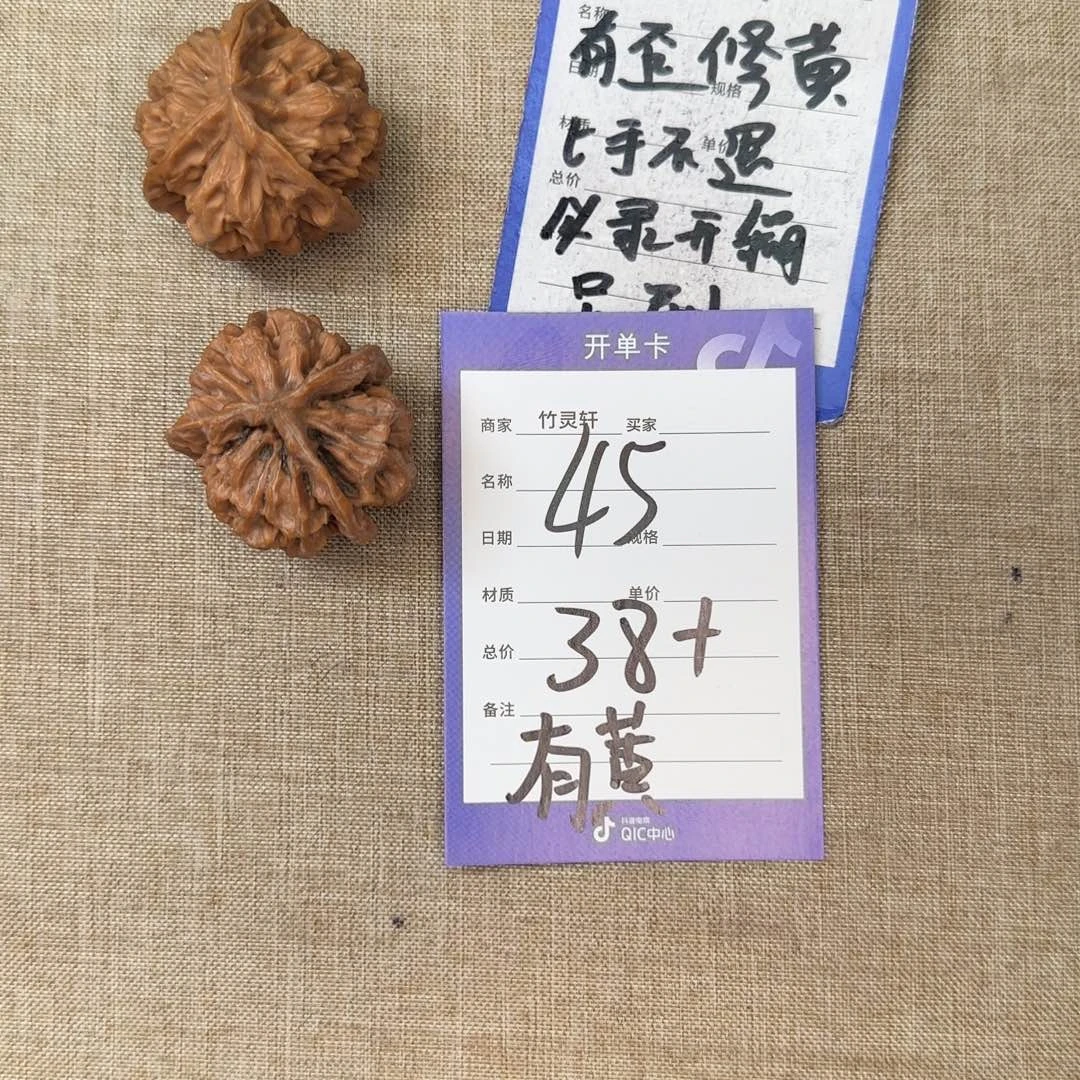 名称
有歪修黄
日期 规格
材质 单价
上手不退
总价
必录开箱
开单卡
商家 竹灵轩 买家
名称
45
日期 规格
材质 单价
38+
总价
备注
有黄
抖音电商
QIC中心